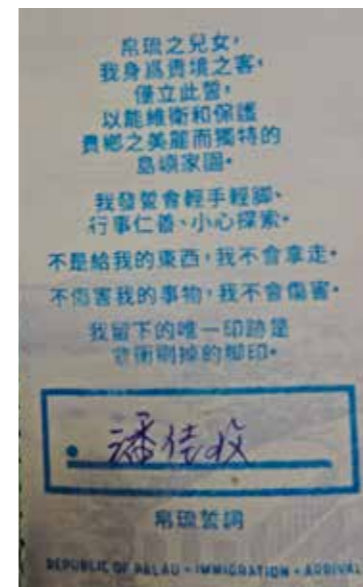 帛琉之兒女，
我身爲貴境之客，
僅立此誓，
以能維衛和保護
貴鄉之美麗而獨特的
島嶼家園。
我發誓會輕手輕腳、
行事仁善、小心探索。
不是給我的東西，我不會拿走。
不傷害我的事物，我不會傷害。
我留下的唯一印跡是
會衝刷掉的腳印。
潘佳
帛琉誓詞
REPUBLIC OF PALAU • IMMIGRATION • ARRIVAL